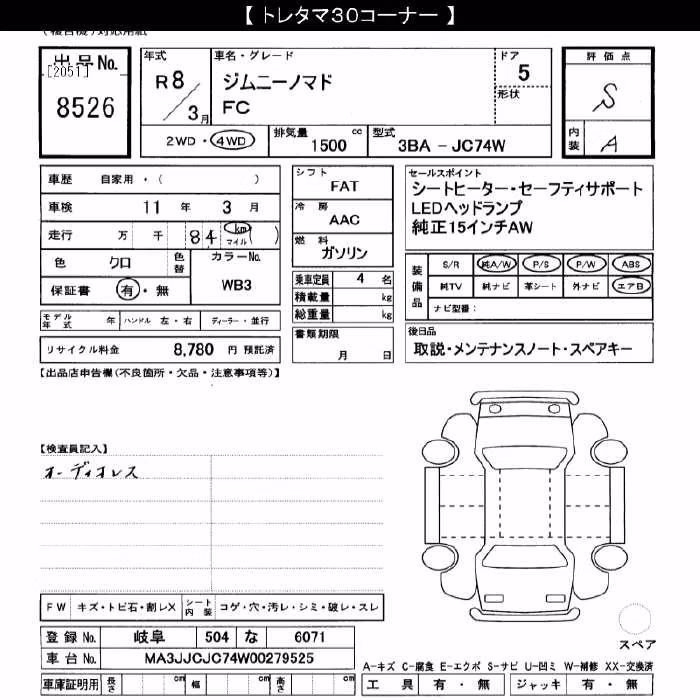 【 トレタマ30コーナー 】
出品No.
[2051]
8526
年式
R8/3月
車名・グレード
ジムニーノマド
FC
ドア
5
形状
2WD・4WD
排気量 1500 cc
型式 3BA - JC74W
評価点
S
内装 A
車歴 自家用・( )
車検 11年 3月
走行 万 千 84 km マイル ( )
色 クロ 色替
カラーNo. WB3
保証書 有・無
モデル年式 年 ハンドル 左・右 ディーラー・並行
リサイクル料金 8,780 円 預託済
シフト
FAT
冷房
AAC
燃料
ガソリン
乗車定員 4 名
積載量 kg
総重量 kg
書類期限
月 日
セールスポイント
シートヒーター・セーフティサポート
LEDヘッドランプ
純正15インチAW
装備品
S/R 純A/W P/S P/W ABS
純TV 純ナビ 革シート 外ナビ エアB
ナビ型番:
後日品
取説・メンテナンスノート・スペアキー
【出品店申告欄(不良箇所・欠品・注意事項等)】
【検査員記入】
オーディオレス
FW キズ・トビ石・割レX シート内装 コゲ・穴・汚レ・シミ・破レ・スレ
登録No. 岐阜 504 な 6071
車台No. MA3JJCJC74W00279525
車庫証明用 長さ cm 幅 cm 高さ cm
スペア
A-キズ C-腐食 E-エクボ S-サビ U-凹ミ W-補修 XX-交換済
工具 有・無 ジャッキ 有・無